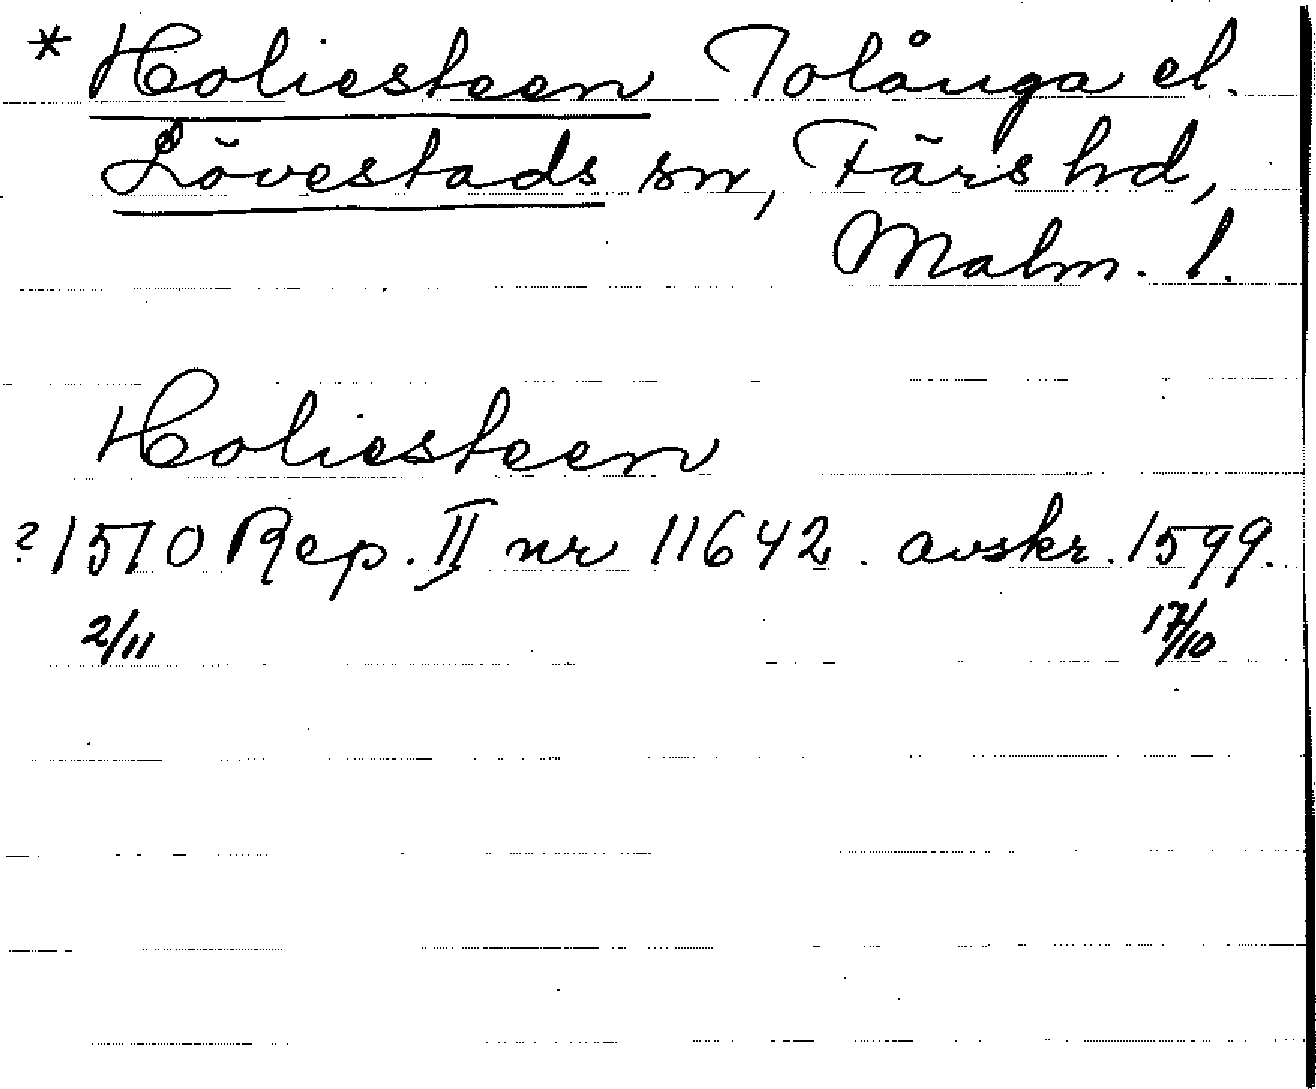 * Holiesteen Tolånga el.
Lövestads sn, Färs hd,
Malm. l.
Holiesteen
? 1510 Rep. II nr 11642. avskr. 1599.
2/11 17/10